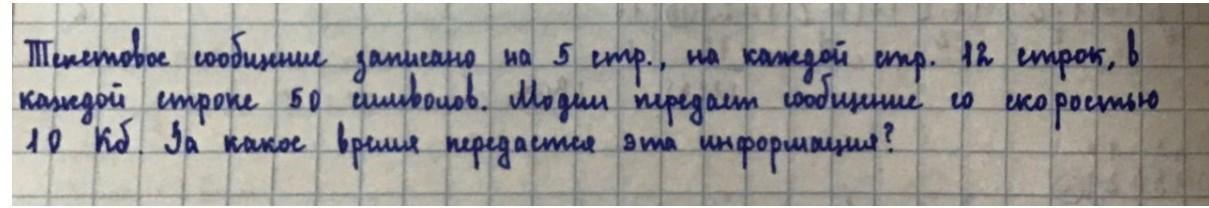 Текстовое сообщение записано на 5 стр., на каждой стр. 12 строк, в
каждой строке 50 символов. Модем передает сообщение со скоростью
10 Кб. За какое время передастся эта информация?